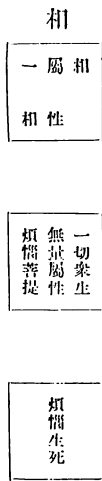 相
相
屬性
一相
一切衆生
無量屬性
煩惱菩提
煩惱生死